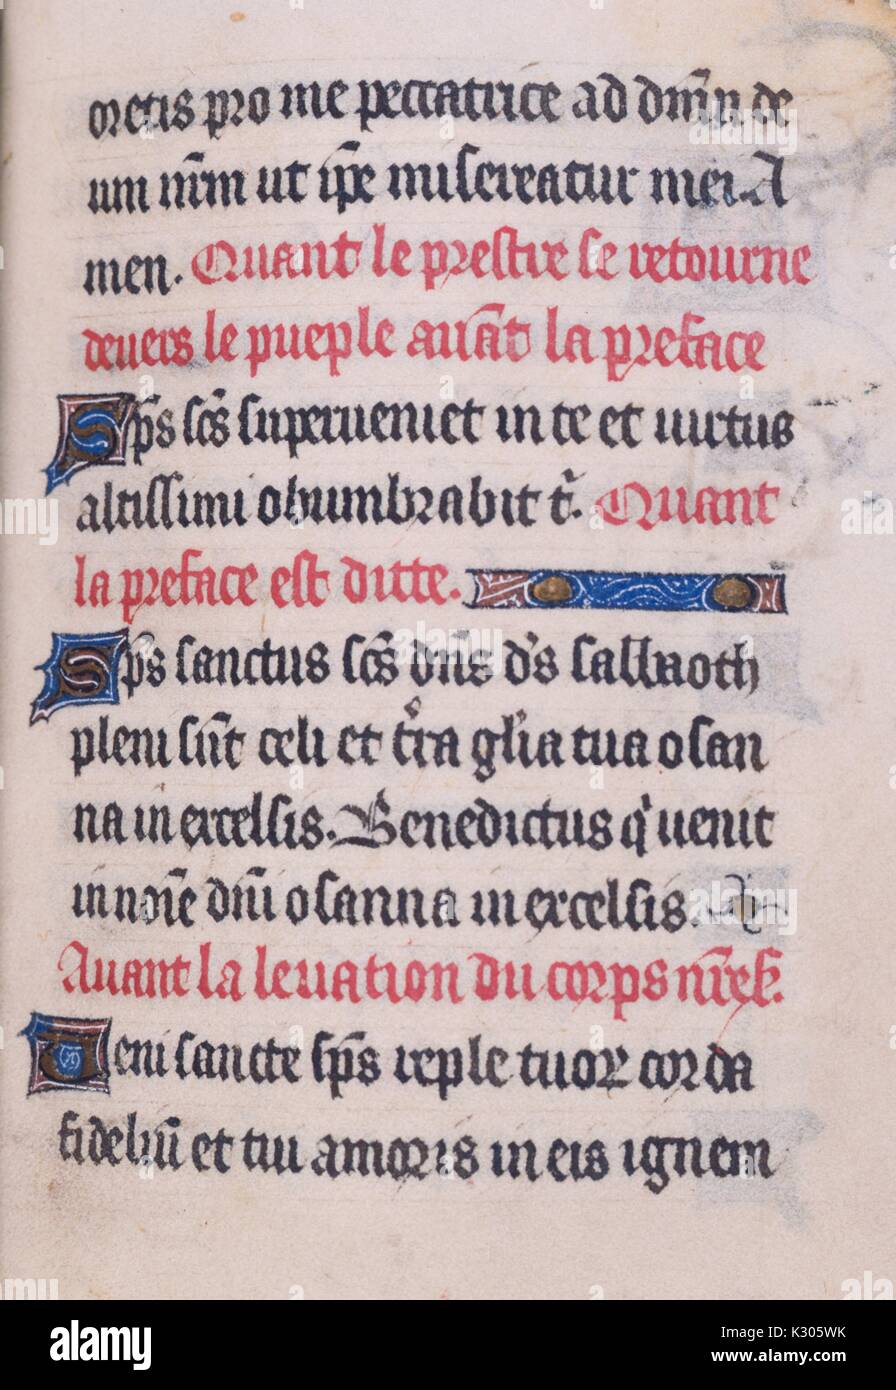 oretis pro me peccatrice ad dm̄n de
um nr̄m ut ip̄e misereatur mei. A
men. Quant le prestre se retourne
devers le pueple auāt la preface
Sp̄s sc̄s superveniet in te et virtus
altissimi obumbrabit t'. Quant
la preface est ditte.
Sp̄s sanctus sc̄s dn̄s d's sabbaoth
pleni sūt celi et t'ra gl'ia tua osan
na in excelsis. Benedictus q' venit
in no̅ie dn̄i osanna in excelsis.
Avant la levation du corps nr̄e s'.
Veni sancte sp̄s reple tuoꝝ corda
fideliū et tui amoris in eis ignem
alamy
Image ID: K305WK
www.alamy.com